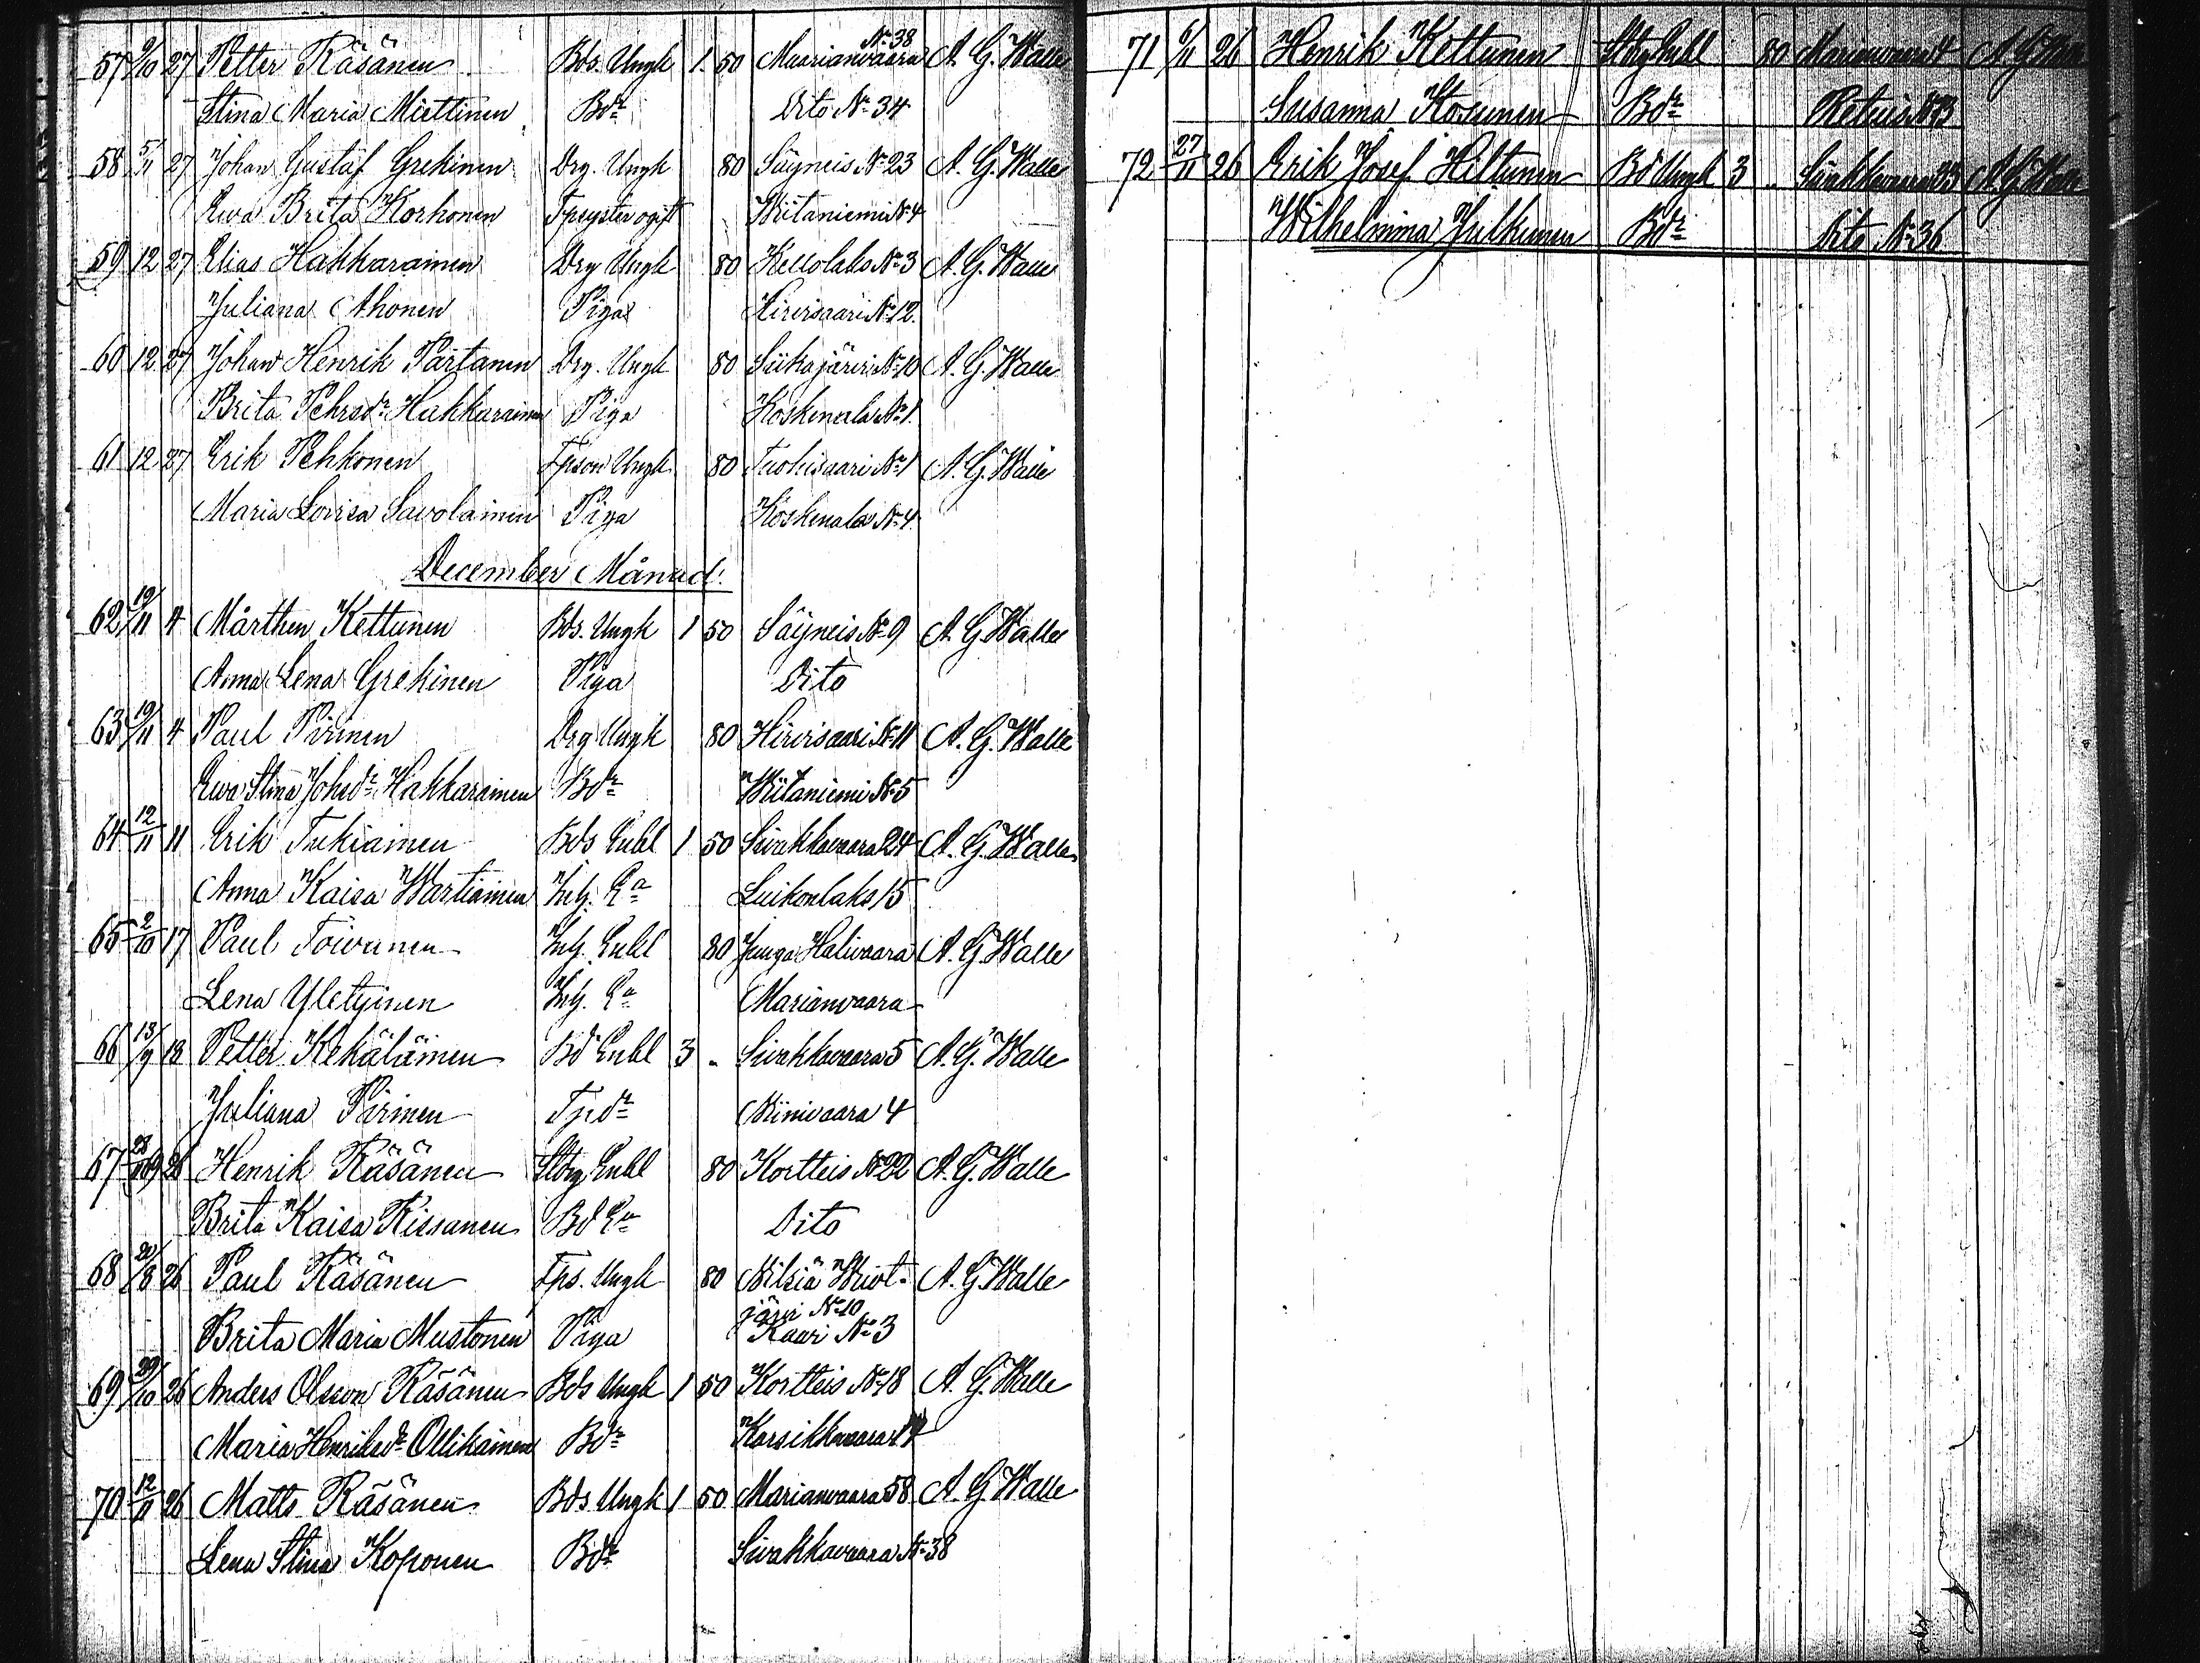 57 9/10 27 Petter Räsänen Bds. Ungk 1. 50 Maarianvaara N:38 A. G. Walle
Stina Maria Miettinen Bdr Dito N:34
58 5/11 27 Johan Gustaf Grekinen Drg. Ungk 80 Säyneis N:23 A. G. Walle
Ewa Brita Korhonen Tpsyster ogift Wiitaniemi N:4
59 12 27 Elias Hakkarainen Drg Ungk 80 Kellolaks N:3 A. G. Walle
Juliana Ahonen Piga Hirvisaari N:12
60 12 27 Johan Henrik Partanen Drg. Ungk 80 Siikajärvi N:10 A. G. Walle
Brita Pehrsdr Hakkarainen Piga Koskenala N:1
61 12 27 Erik Pehkonen Tpson Ungk 80 Tuohisaari N:1 A. G. Walle
Maria Lovisa Savolainen Piga Koskenala N:4
December Månad.
62 19/11 4 Mårthen Kettunen Bds. Ungk 1 50 Säyneis N:9 A. G. Walle
Anna Lena Grekinen Piga Dito
63 19/11 4 Paul Pirinen Drg Ungk 80 Hirvisaari N:11 A. G. Walle
Ewa Stina Johsdr Hakkarainen Bdr Wiitaniemi N:5
64 12/11 11 Erik Tukiainen Bds Enkl 1 50 Sivakkavaara 24 A. G. Walle
Anna Kaisa Wartiainen Inh. Ea Luikonlaks 15
65 2/10 17 Paul Toivanen Inh. Enkl 80 Junga Halivaara A. G. Walle
Lena Yletyinen Inh. Ea Marianvaara
66 13/9 18 Petter Kekäläinen Bd Enkl 3 - Sivakkavaara 5 A. G. Walle
Juliana Pirinen Tpdr Niinivaara 4
67 26 Henrik Räsänen Stbg Enkl 80 Kortteis N:22 A. G. Walle
Brita Kaisa Rissanen Bd Ea Dito
68 26 Paul Räsänen Tps. Ungk 80 Nilsiä Wuot- A. G. Walle
järvi N:10
Brita Maria Mustonen Piga Kaavi N:3
69 29/10 26 Anders Olsson Räsänen Bds Ungk 1 50 Kortteis N:18 A. G. Walle
Maria Henriksdr Ollikainen Bdr Karsikkovaara
70 12/11 26 Matts Räsänen Bds Ungk 1 50 Marianvaara 58 A. G. Walle
Lena Stina Koponen Bdr Sivakkavaara N:38
71 6/11 26 Henrik Kettunen Stbg Enkl 80 Marianvaara 4 A. G. Walle
Susanna Kosunen Bdr Retuis N:3
72 27/11 26 Erik Josef Hiltunen Bd Ungk 3 - Sivakkavaara 23 A. G. Walle
Wilhelmina Julkunen Bdr Dito N:36